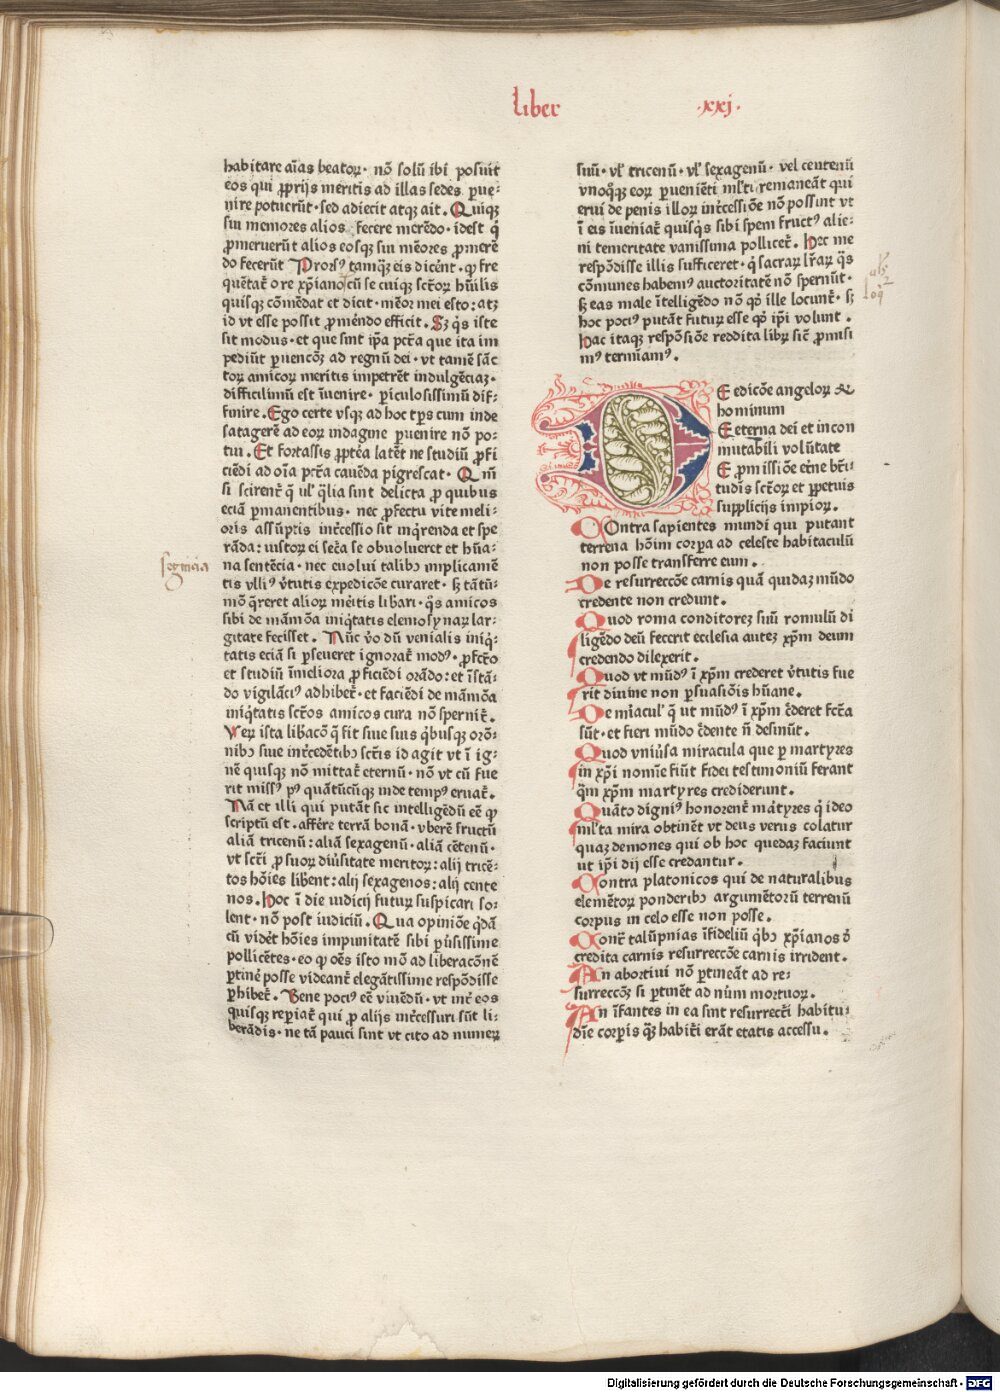 liber .xxj.
habitare aīas beatoꝝ · nō solū ibi posuit
eos qui ꝓprijs meritis ad illas sedes ꝑue⸗
nire potuerūt · sed adiecit atqꝫ ait . Quiqꝫ
sui memores alios fecere merēdo · idest q̇
ꝓmeruerūt alios eosqꝫ sui mēores ꝓmerē
do fecerūt Prorsꝰ tamqꝫ eis dicēnt · qꝰ fre
quētat̄ ore xp̄iano cū se cuiqꝫ scr̄oꝝ hūilis
quisqꝫ cōmēdat et dicit · mēor mei esto : atꝫ
id vt esse possit ꝓmēndo efficit . Sꝫ q̇s iste
sit modus · et que sint ip̄a pcr̄a que ita im
pediūt ꝑuencōꝫ ad regnū dei · vt tamē sāc
toꝝ amicoꝝ meritis impetrēt indulgēciaꝫ ·
difficilimū est īuenire · ꝑiculosissimū dif⸗
finire . Ego certe vsqꝫ ad hoc tp̄s cum inde
satagerē ad eoꝝ indagine ꝑuenire nō po⸗
tui . Et fortassis ꝓpt̄ea latēt ne studiū ꝓfi
ciēdi ad oīa pcr̄a cauēda pigrescat · Qm̄
si scirent̄ q̄ ul̓ q̄lia sunt delicta ꝓ quibus
eciā ꝑmanentibus · nec ꝓfectu vite meli⸗
oris assūptis int̄cessio sit inq̇renda et spe
rāda : iustoꝝ ei sec̄a se obuolueret et hūa⸗
na sentēcia · nec euolui talibꝰ implicamē
tis vlliꝰ v̄tutis expedicōe curaret · sꝫ tātū⸗
mō q̄reret alioꝝ mēitis lib̄ari · q̇s amicos
sibi de māmōa iniq̇tatis elemosynaꝝ lar⸗
gitate fecisset . Nūc v̄o dū venialis iniq̇⸗
tatis eciā si ꝑseueret ignorat̄ modꝰ · ꝓfcr̄o
et studiū īmeliora ꝓficiēdi orādo : et īstā⸗
do vigilāciꝰ adhibet̄ · et faciēdi de māmōa
iniq̇tatis scr̄os amicos cura nō spernit̄ .
Veꝝ ista lib̄acō q̄ fit siue suis q̇busqꝫ orō⸗
nibꝰ siue int̄cedētibꝰ scr̄is id agit vt ī ig⸗
nē quisqꝫ nō mittat̄ eternū · nō vt cū fue
rit missꝰ pꝰ quātūcūqꝫ inde tempꝰ eruat̄ .
Nā et illi qui putāt sic intelligēdū eē qꝰ
scriptū est . affēre terrā bonā · vberē fructū
aliā tricenū : aliā sexagenū · aliā cētenū ·
vt scr̄i ꝓ suoꝝ diūsitate meritoꝝ : alij tricē⸗
tos hōies lib̄ent : alij sexagenos : alij cente
nos . hoc ī die iudicij futuꝝ suspicari so⸗
lent · nō post iudiciū . Qua opiniōe q̇dā
cū videt̄ hōies impunitatē sibi ꝑūsissime
pollicētes · eo qꝰ oēs isto mō ad liberacōnē
ꝑtinē posse videant̄ elegātissime respōdisse
ꝑhibet̄ . Bene pociꝰ eē viuēdū · vt int̄ eos
quisqꝫ reꝑiat̄ qui ꝓ alijs int̄cessuri sūt li⸗
berādis · ne tā pauci sint vt cito ad numeꝝ
suū · vl̓ tricenū · vl̓ sexagenū · vel centenū
vnoq̄qꝫ eoꝝ ꝑueniēti ml̓ti remaneāt qui
erui de penis illoꝝ int̄cessiōe nō possint vt
ī eis īueniat̄ quisq̇s sibi spem fructꝰ alie⸗
ni temeritate vanissima pollicet̄ . Hec me
respōdisse illis sufficeret · q̇ sacraꝝ lr̄aꝝ q̇s
cōmunes habemꝰ auctoritatē nō spernūt ·
sꝫ eas male ītelligēdo nō qꝰ ille locunt̄ · sꝫ
hoc pociꝰ putāt futuꝝ esse qꝰ ip̄i volunt .
hac itaqꝫ respōsiōe reddita librꝫ sic̄ ꝓmisi
mꝰ termīamꝰ .
E edicōe angeloꝝ &
hominum
E eterna dei et incon
mutabili volūtate
E ꝓmissiōe et̄ne br̄i⸗
tudīs scr̄oꝝ et ꝑpetuis
supplicijs impioꝝ .
COntra sapientes mundi qui putant
terrena hōim corpa ad celeste habitaculū
non posse transferre eum .
De resurreccōe carnis quā quidaꝫ mūdo
credente non credunt .
Quod roma conditoreꝫ suū romulū di
ligēdo deū fecerit ecclesia auteꝫ xp̄m deum
credendo dilexerit .
Quod vt mūdꝰ ī xp̄m crederet v̄tutis fue
rit diuine non ꝑsuasiōis hūane .
De mīaculꝭ q̄ ut mūdꝰ ī xp̄m c̄deret fcr̄a
sūt · et fieri mūdo c̄dente n̄ desinūt .
Quod vniūsa miracula que ꝑ martyres
in xp̄i nomīe fiūt fidei testimoniū ferant
q̄m xp̄m martyres crediderunt .
Quāto digniꝰ honorent̄ mātyres q̇ ideo
ml̓ta mira obtinēt vt deus verus colatur
quaꝫ demones qui ob hoc quedaꝫ faciunt
ut ip̄i dij esse credantur .
Contra platonicos qui de naturalibus
elemētoꝝ ponderibꝰ argumētoꝝ terrenū
corpus in celo esse non posse .
Contr̄ talūpnias īfideliū q̇bꝰ xp̄ianos ꝺ̄
credita carnis resurreccōe carnis irrident .
An abortiui nō ꝑtineāt ad re⸗
surreccōꝫ si ꝑtinēt ad nūm mortuoꝝ .
An īfantes in ea sint resurrecti habitu⸗
dīe corꝑis q̄ꝫ habit̄i erāt etatis accessu .
Digitalisierung gefördert durch die Deutsche Forschungsgemeinschaft - DFG